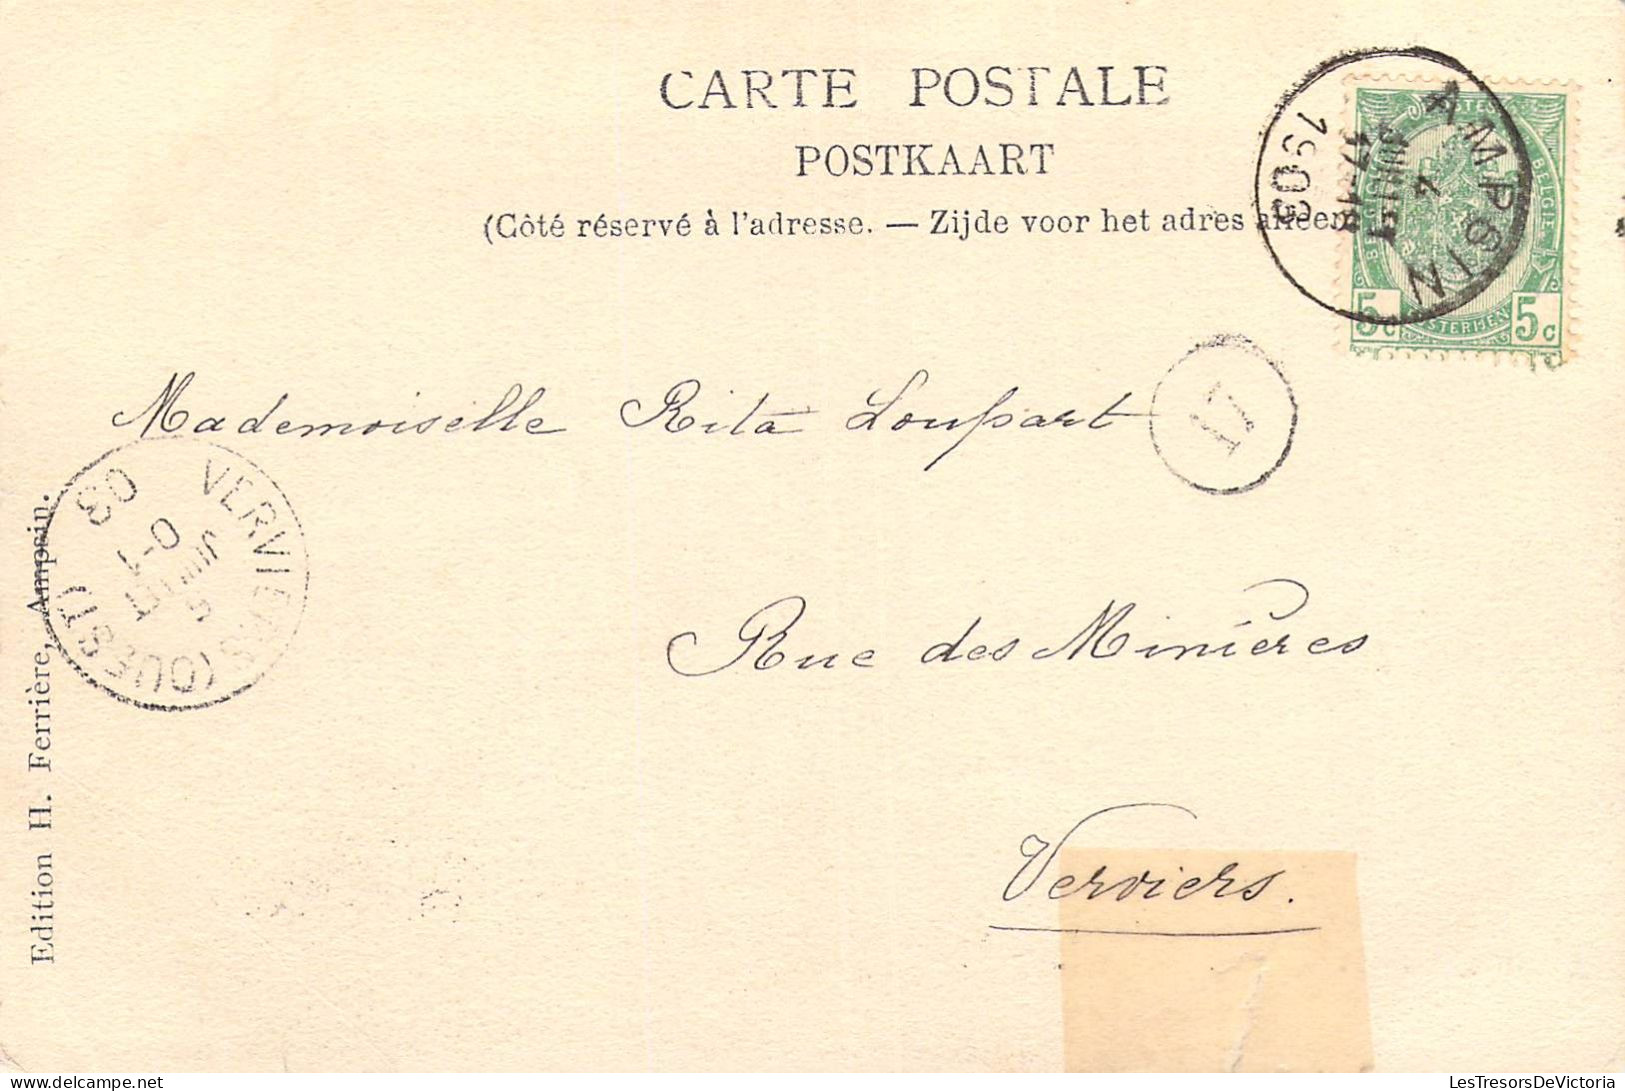 CARTE POSTALE
POSTKAART
(Côté réservé à l'adresse. — Zijde voor het adres alleen
AMPSIN
4
JUILLET
17-18
1903
POSTES
BELGIQUE
BELGIË
5c 5c
17
Mademoiselle Rita Loupart
VERVIERS (OUEST)
5
JUILLET
0-1
03
Rue des Minières
Verviers.
Edition H. Ferrière, Ampsin.
delcampe.net
LesTresorsDeVictoria